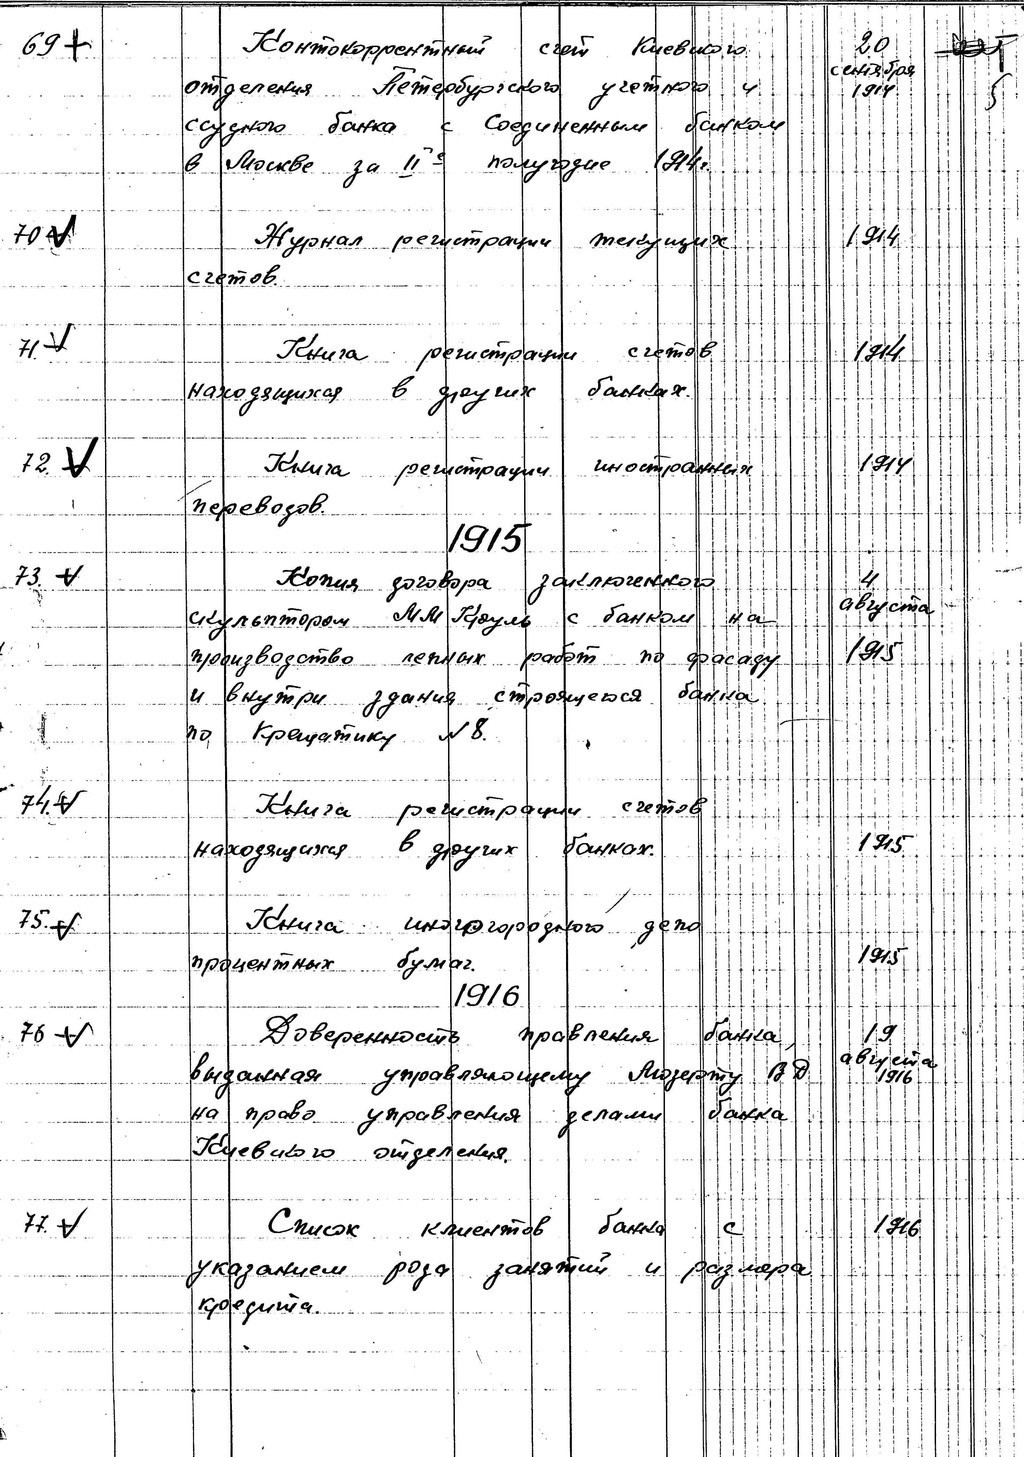 69 + Контокоррентный счет Киевского 20
отделения Петербургского учетного и сентября 1914
ссудного банка с Соединенным банком
в Москве за II-е полугодие 1914г.
70 V Журнал регистрации текущих 1914
счетов.
71. V Книга регистрации счетов 1914
находящихся в других банках.
72. V Книга регистрации иностранных 1914
переводов.
1915
73. V Копия договора заключенного 4
скульптором ММ Крауль с банком на августа
производство лепных работ по фасаду 1915
и внутри здания строящегося банка
по Крещатику N 8.
74. V Книга регистрации счетов
находящихся в других банках. 1915
75. V Книга иногороднего депо
процентных бумаг. 1915
1916
76 V Доверенность правления банка, 19
выданная управляющему ВД августа 1916
на право управления делами банка
Киевского отделения.
77. V Список клиентов банка с 1916
указанием рода занятий и размера
кредита.